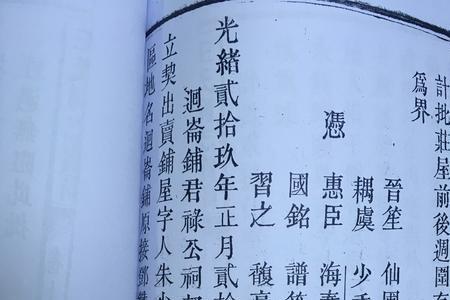 計批莊屋前後週圍
爲界
晉笙 仙
耦虞 少
憑 惠臣 海
國銘 譜
習之 馥
光緒貳拾玖年正月貳
迴崙鋪君祿公祠
立契出賣鋪屋字人朱
區地名迴崙鋪原接鄧